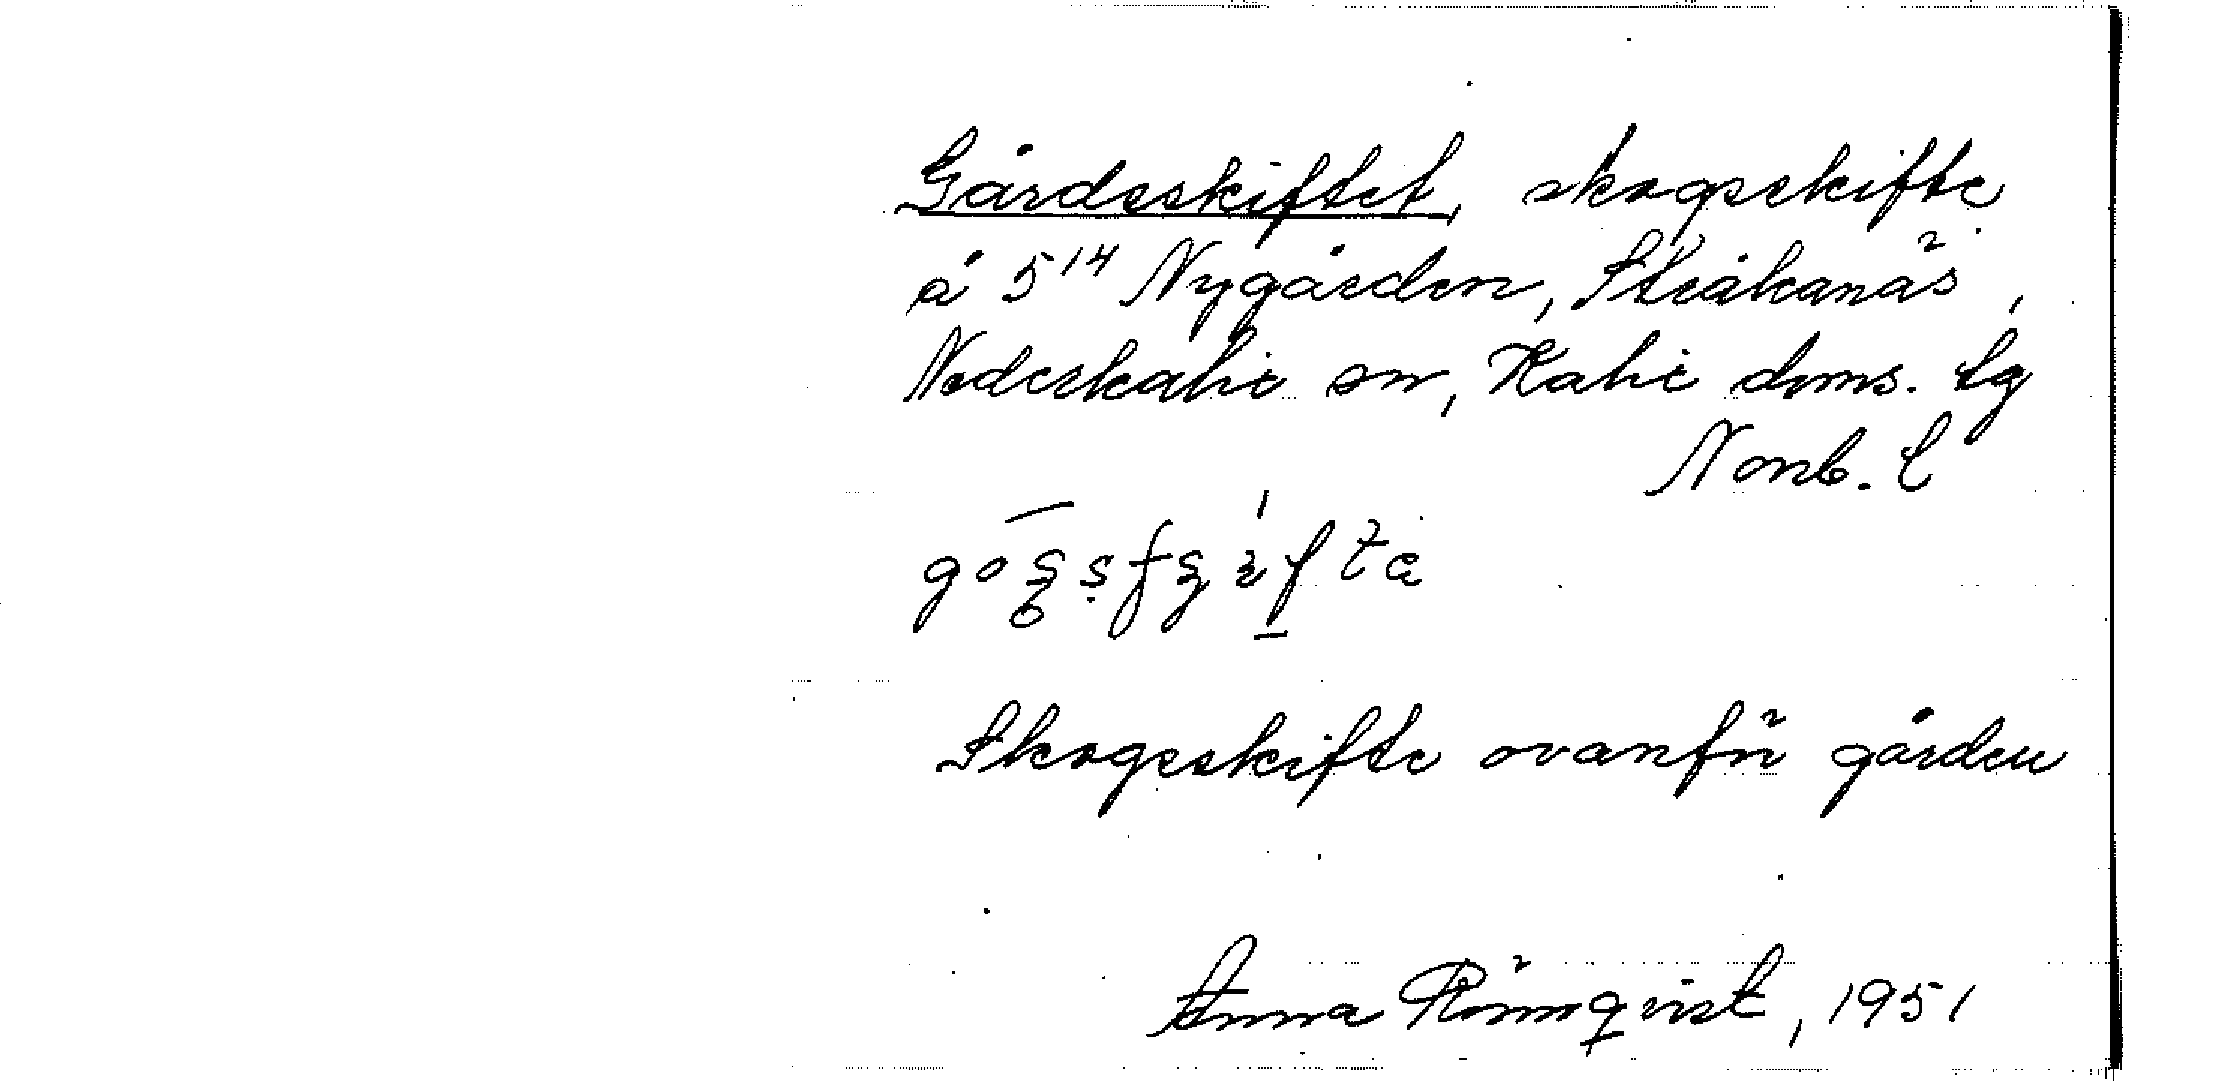 Gårdsskiftet, skogsskifte
å 5¹⁴ Nygården, Stråkanäs,
Nederkalix sn, Kalix doms. lg
Norrb. l
Skogsskifte ovanför gården
Anna Rönnqvist, 1951